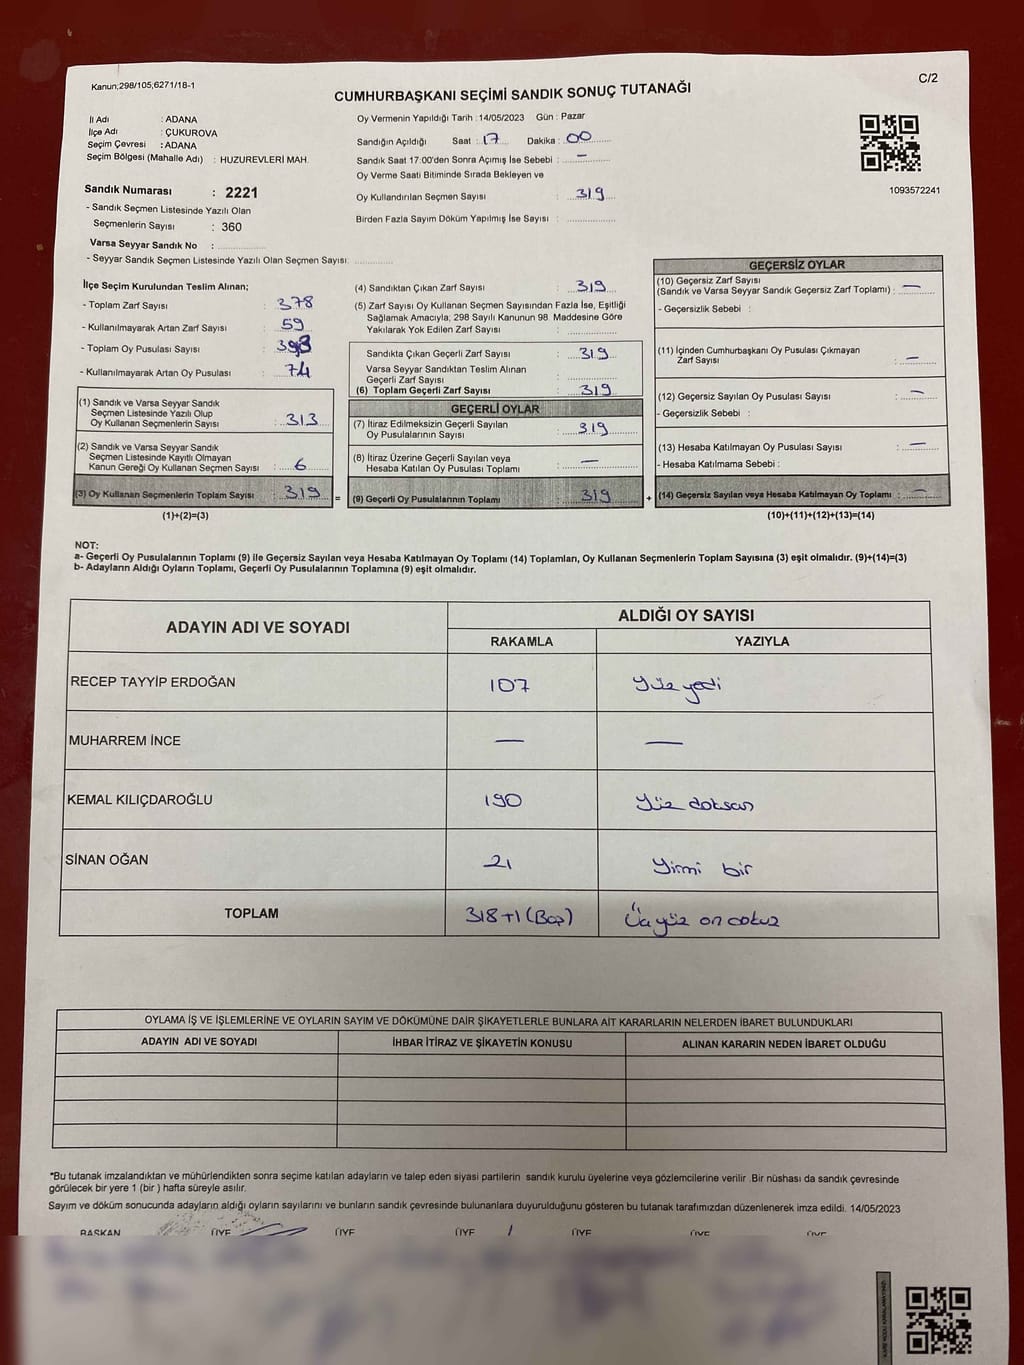 Kanun;298/105,6271/18-1
C/2
CUMHURBAŞKANI SEÇİMİ SANDIK SONUÇ TUTANAĞI
İl Adı : ADANA
İlçe Adı : ÇUKUROVA
Seçim Çevresi : ADANA
Seçim Bölgesi (Mahalle Adı) : HUZUREVLERİ MAH.
Sandık Numarası : 2221
- Sandık Seçmen Listesinde Yazılı Olan
Seçmenlerin Sayısı : 360
Varsa Seyyar Sandık No :
- Seyyar Sandık Seçmen Listesinde Yazılı Olan Seçmen Sayısı:
Oy Vermenin Yapıldığı Tarih : 14/05/2023 Gün : Pazar
Sandığın Açıldığı Saat : 17 Dakika : 00
Sandık Saat 17:00'den Sonra Açımış İse Sebebi : —
Oy Verme Saati Bitiminde Sırada Bekleyen ve
Oy Kullandırılan Seçmen Sayısı : 319
Birden Fazla Sayım Döküm Yapılmış İse Sayısı :
1093572241
İlçe Seçim Kurulundan Teslim Alınan;
- Toplam Zarf Sayısı : 378
- Kullanılmayarak Artan Zarf Sayısı : 59
- Toplam Oy Pusulası Sayısı : 393
- Kullanılmayarak Artan Oy Pusulası : 74
(1) Sandık ve Varsa Seyyar Sandık
Seçmen Listesinde Yazılı Olup
Oy Kullanan Seçmenlerin Sayısı : 313
(2) Sandık ve Varsa Seyyar Sandık
Seçmen Listesinde Kayıtlı Olmayan
Kanun Gereği Oy Kullanan Seçmen Sayısı : 6
(3) Oy Kullanan Seçmenlerin Toplam Sayısı : 319 =
(1)+(2)=(3)
(4) Sandıktan Çıkan Zarf Sayısı : 319
(5) Zarf Sayısı Oy Kullanan Seçmen Sayısından Fazla İse, Eşitliği
Sağlamak Amacıyla; 298 Sayılı Kanunun 98. Maddesine Göre
Yakılarak Yok Edilen Zarf Sayısı :
Sandıkta Çıkan Geçerli Zarf Sayısı : 319
Varsa Seyyar Sandıktan Teslim Alınan
Geçerli Zarf Sayısı :
(6) Toplam Geçerli Zarf Sayısı : 319
GEÇERLİ OYLAR
(7) İtiraz Edilmeksizin Geçerli Sayılan
Oy Pusulalarının Sayısı : 319
(8) İtiraz Üzerine Geçerli Sayılan veya
Hesaba Katılan Oy Pusulası Toplamı : —
(9) Geçerli Oy Pusulalarının Toplamı : 319 +
GEÇERSİZ OYLAR
(10) Geçersiz Zarf Sayısı
(Sandık ve Varsa Seyyar Sandık Geçersiz Zarf Toplamı) : —
- Geçersizlik Sebebi :
(11) İçinden Cumhurbaşkanı Oy Pusulası Çıkmayan
Zarf Sayısı : —
(12) Geçersiz Sayılan Oy Pusulası Sayısı : —
- Geçersizlik Sebebi :
(13) Hesaba Katılmayan Oy Pusulası Sayısı : —
- Hesaba Katılmama Sebebi :
(14) Geçersiz Sayılan veya Hesaba Katılmayan Oy Toplamı : —
(10)+(11)+(12)+(13)=(14)
NOT:
a- Geçerli Oy Pusulalarının Toplamı (9) ile Geçersiz Sayılan veya Hesaba Katılmayan Oy Toplamı (14) Toplamları, Oy Kullanan Seçmenlerin Toplam Sayısına (3) eşit olmalıdır. (9)+(14)=(3)
b- Adayların Aldığı Oyların Toplamı, Geçerli Oy Pusulalarının Toplamına (9) eşit olmalıdır.
ADAYIN ADI VE SOYADI ALDIĞI OY SAYISI
RAKAMLA YAZIYLA
RECEP TAYYİP ERDOĞAN 107 Yüz yedi
MUHARREM İNCE — —
KEMAL KILIÇDAROĞLU 190 Yüz doksan
SİNAN OĞAN 21 Yirmi bir
TOPLAM 318+1 (Boş) Üçyüz on dokuz
OYLAMA İŞ VE İŞLEMLERİNE VE OYLARIN SAYIM VE DÖKÜMÜNE DAİR ŞİKAYETLERLE BUNLARA AİT KARARLARIN NELERDEN İBARET BULUNDUKLARI
ADAYIN ADI VE SOYADI İHBAR İTİRAZ VE ŞİKAYETİN KONUSU ALINAN KARARIN NEDEN İBARET OLDUĞU
*Bu tutanak imzalandıktan ve mühürlendikten sonra seçime katılan adayların ve talep eden siyasi partilerin sandık kurulu üyelerine veya gözlemcilerine verilir .Bir nüshası da sandık çevresinde
görülecek bir yere 1 (bir ) hafta süreyle asılır.
Sayım ve döküm sonucunda adayların aldığı oyların sayılarını ve bunların sandık çevresinde bulunanlara duyurulduğunu gösteren bu tutanak tarafımızdan düzenlenerek imza edildi. 14/05/2023
BAŞKAN ÜYE ÜYE ÜYE ÜYE ÜYE ÜYE